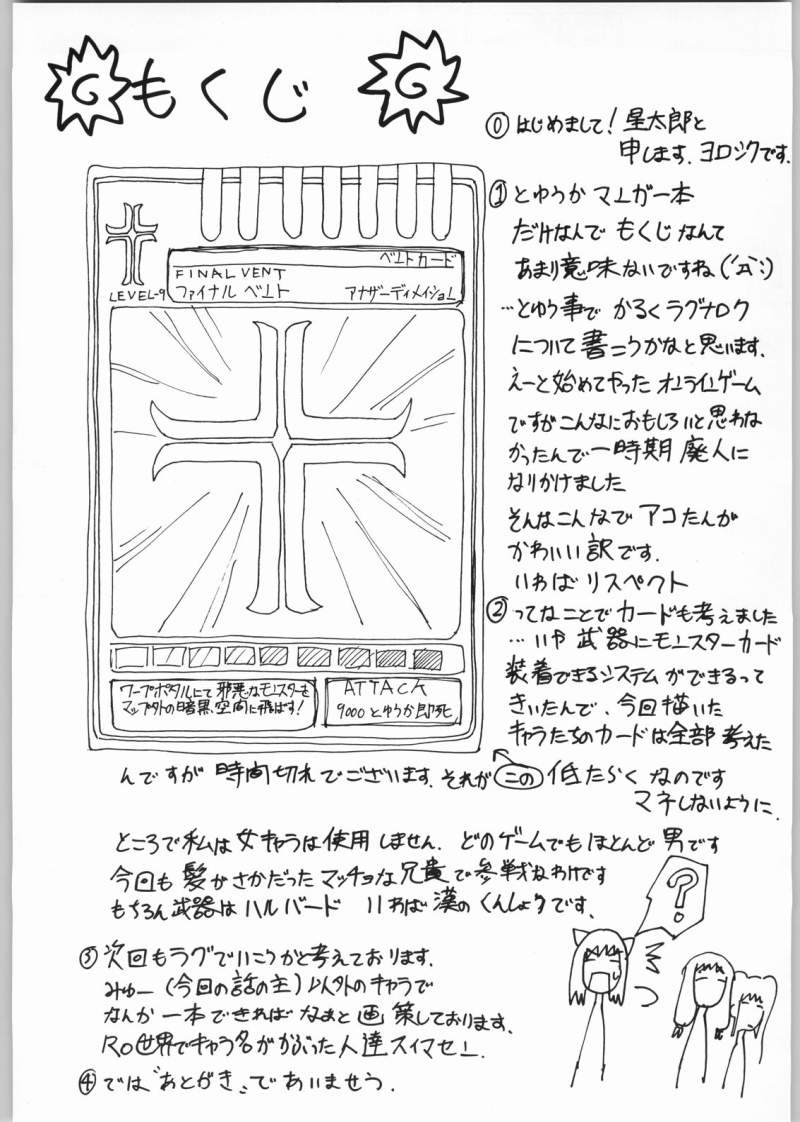 G もくじ G
⓪ はじめまして!星太郎と
申します。ヨロシクです。
LEVEL-9
ベントカード
FINAL VENT
ファイナルベント アナザーディメイション
ワープポタルにて邪悪なモンスターを
マップ外の暗黒空間に飛ばす!
ATTACK
9000とゆうか即死
① とゆうかマンガ一本
だけなんでもくじなんて
あまり意味ないですね(´д`;)
…とゆう事でかるくラグナロク
について書こうかなと思います。
えーと始めてやったオンラインゲーム
ですがこんなにおもしろいと思わな
かったんで一時期廃人に
なりかけました
そんなこんなでアコたんが
かわいい訳です。
いわばリスペクト
② ってなことでカードも考えました
…いや武器にモンスターカード
装着できるシステムができるって
きいたんで、今回描いた
キャラたちのカードは全部考えた
んですが時間切れでございます。それがこの低たらくなのです
マネしないように。
ところで私は女キャラは使用しません。どのゲームでもほとんど男です
今回も髪がさかだったマッチョな兄貴で参戦なわけです
もちろん武器はハルバード いわば漢のくんしょうです。
?
③ 次回もラグでいこうかと考えております。
みゅー(今回の話の主)以外のキャラで
なんか一本できればなぁと画策しております。
RO世界でキャラ名がかぶった人達スイマセン。
④ では"あとがき"であいませう.